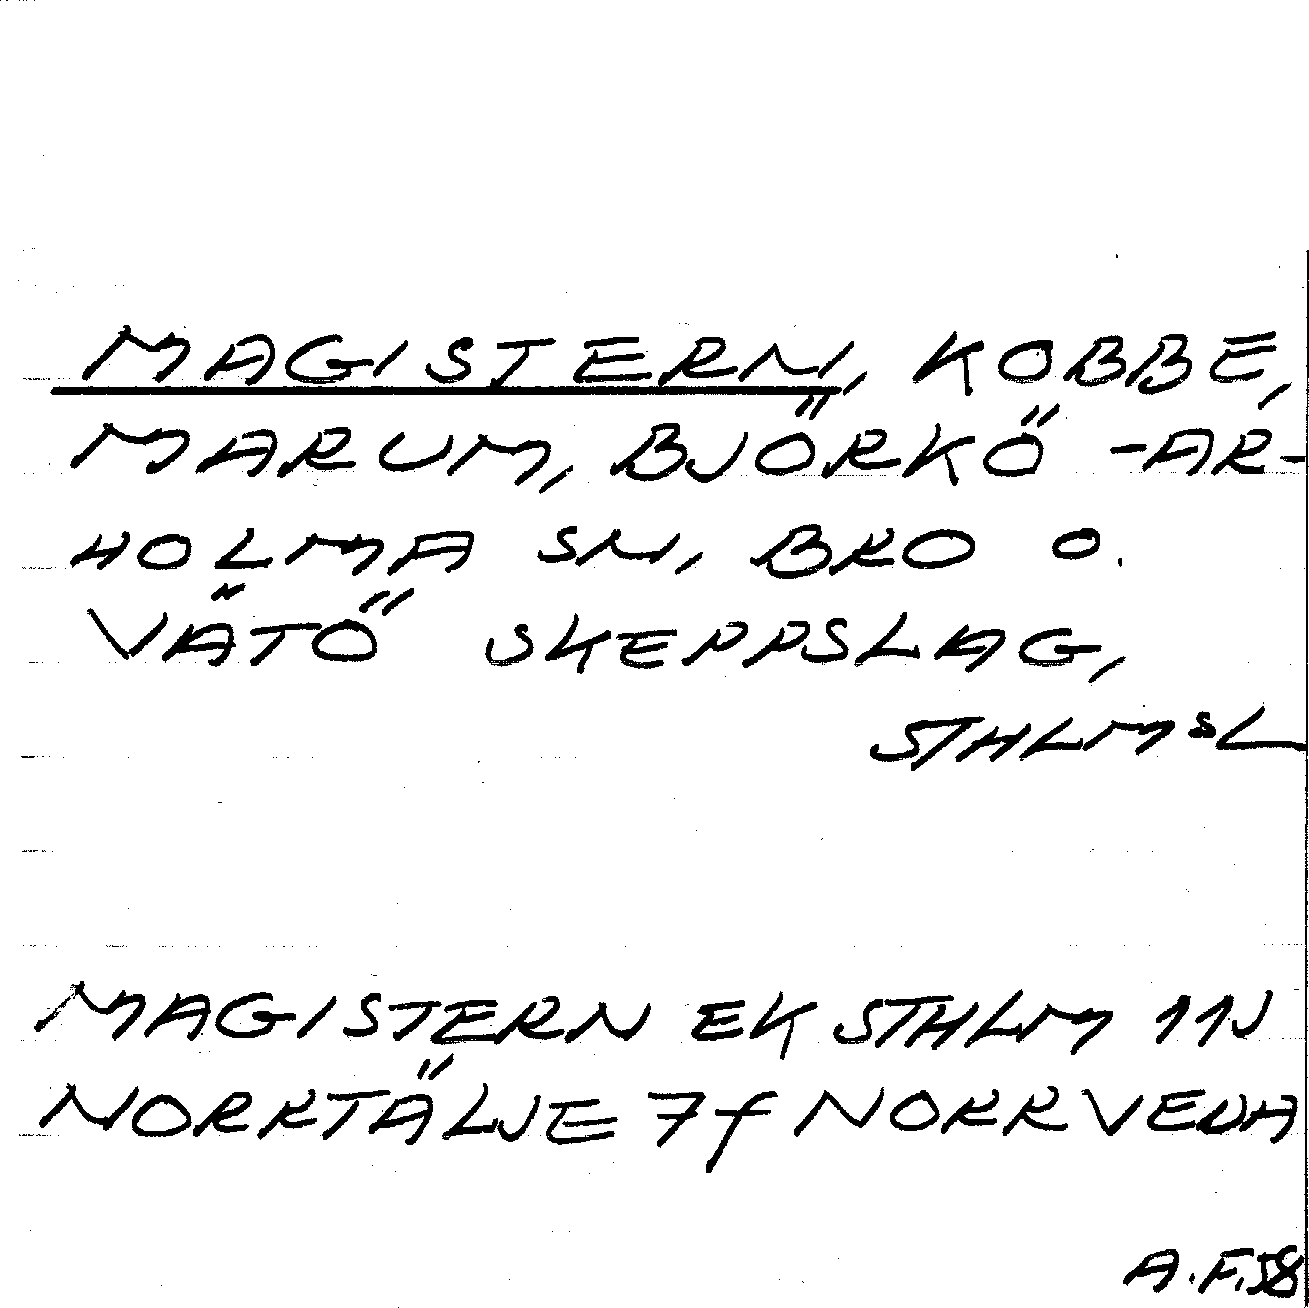 MAGISTERN, KOBBE,
MARUM, BJÖRKÖ-AR-
HOLMA SN, BRO O.
VÄTÖ SKEPPSLAG,
STHLMSL
MAGISTERN EK STHLM 11J
NORRTÄLJE 7f NORRVEDA
A.F.58